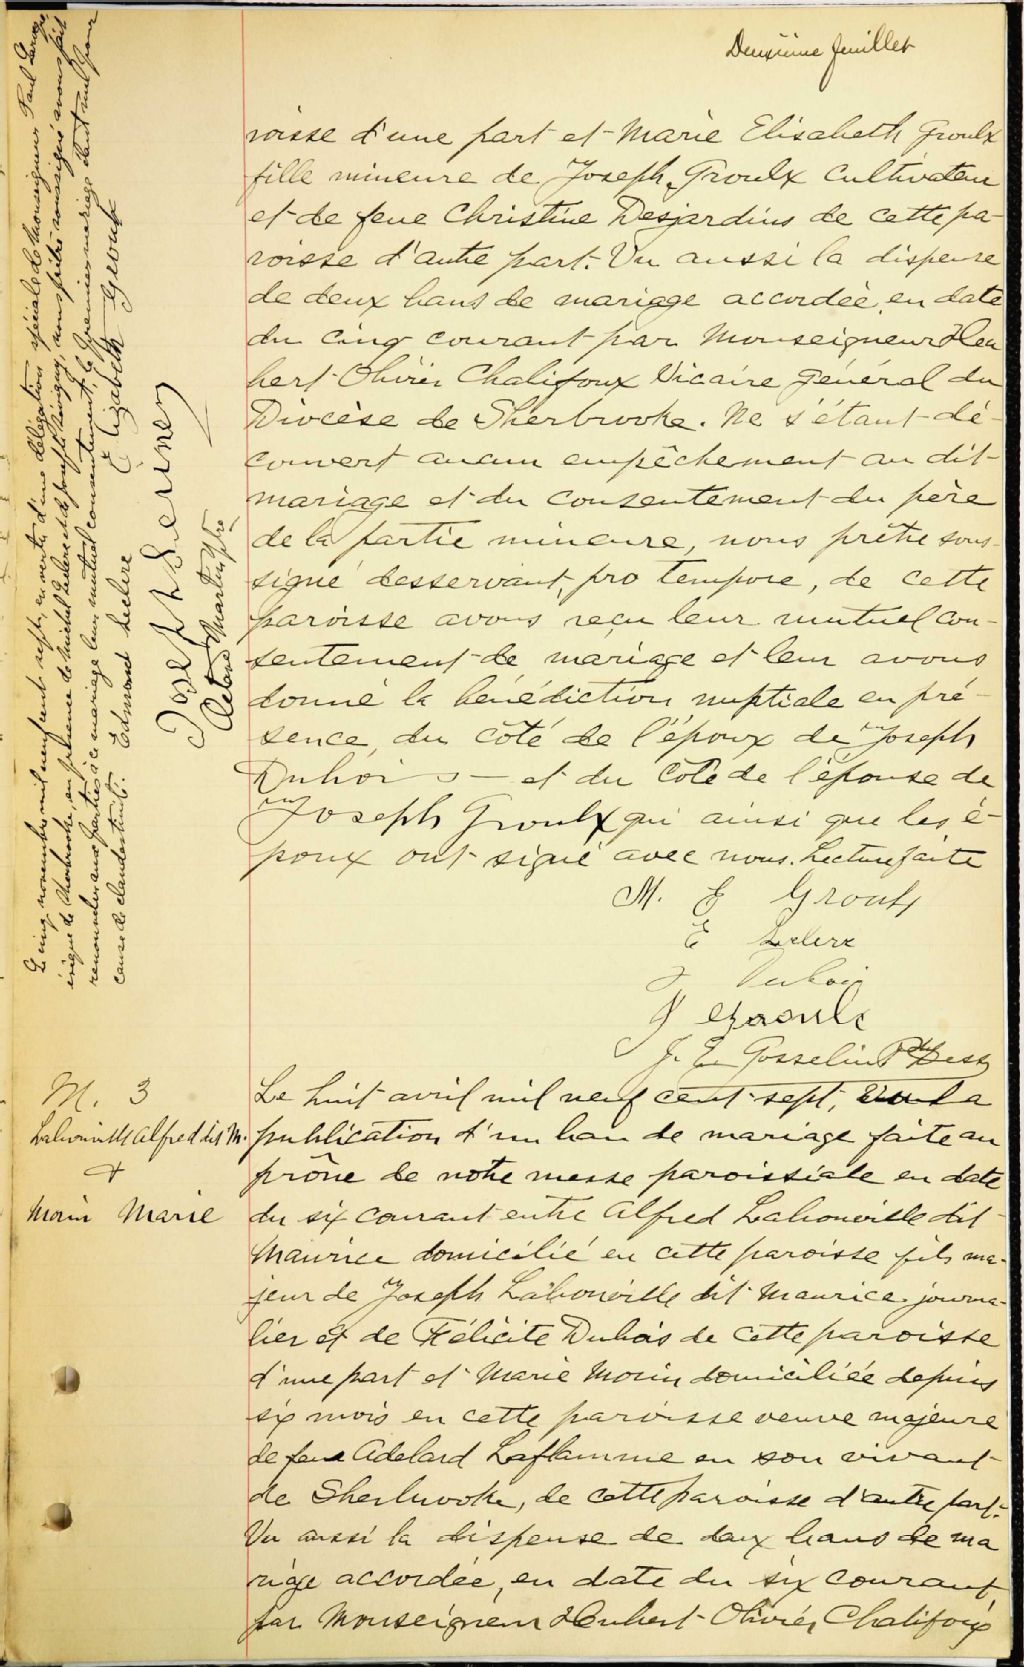 Deuxième feuillet
roisse d'une part et Marie Elisabeth Groulx
fille mineure de Joseph Groulx cultivateur
et de feue Christine Desjardins de cette pa-
roisse d'autre part. Vu aussi la dispense
de deux bans de mariage accordée, en date
du cinq courant par Monseigneur Hu
bert Olivier Chalifoux Vicaire général du
Diocèse de Sherbrooke. Ne s'étant dé-
couvert aucun empêchement au dit
mariage et du consentement du père
de la partie mineure, nous prêtre sous-
signé desservant, pro tempore, de cette
paroisse avons reçu leur mutuel con-
sentement de mariage et leur avons
donné la bénédiction nuptiale en pré-
sence, du côté de l'époux de Joseph
Dubois — et du côté de l'épouse de
Joseph Groulx qui ainsi que les é-
poux ont signé avec nous. Lecture faite
M. E Groulx
E Leclerc
J Dubois
J Groulx
J. E. Gosselin Ptre Dess
Le cinq novembre mil neuf cent sept, en vertu d'une délégation spéciale de Monseigneur Paul Larocque
évêque de Sherbrooke, en présence de Michel Leclerc et de Joseph Sévigny, nous prêtre soussigné avons fait
renouveler aux parties à ce mariage leur mutuel consentement, le premier mariage étant nul pour
cause de clandestinité. Edmond Leclerc Elizabeth Groulx
Joseph
Martin ptre
M. 3
Labonville Alfred dit M.
+
Morin Marie
Le huit avril mil neuf cent sept, vu la
publication d'un ban de mariage faite au
prône de notre messe paroissiale en date
du six courant entre Alfred Labonville dit
Maurice domicilié en cette paroisse fils ma-
jeur de Joseph Labonville dit Maurice journa-
lier et de Félicité Dubois de cette paroisse
d'une part et Marie Morin domiciliée depuis
six mois en cette paroisse veuve majeure
de feue Adelard Laflamme en son vivant
de Sherbrooke, de cette paroisse d'autre part.
Vu aussi la dispense de deux bans de ma
riage accordée, en date du six courant,
par Monseigneur Hubert Olivier Chalifoux